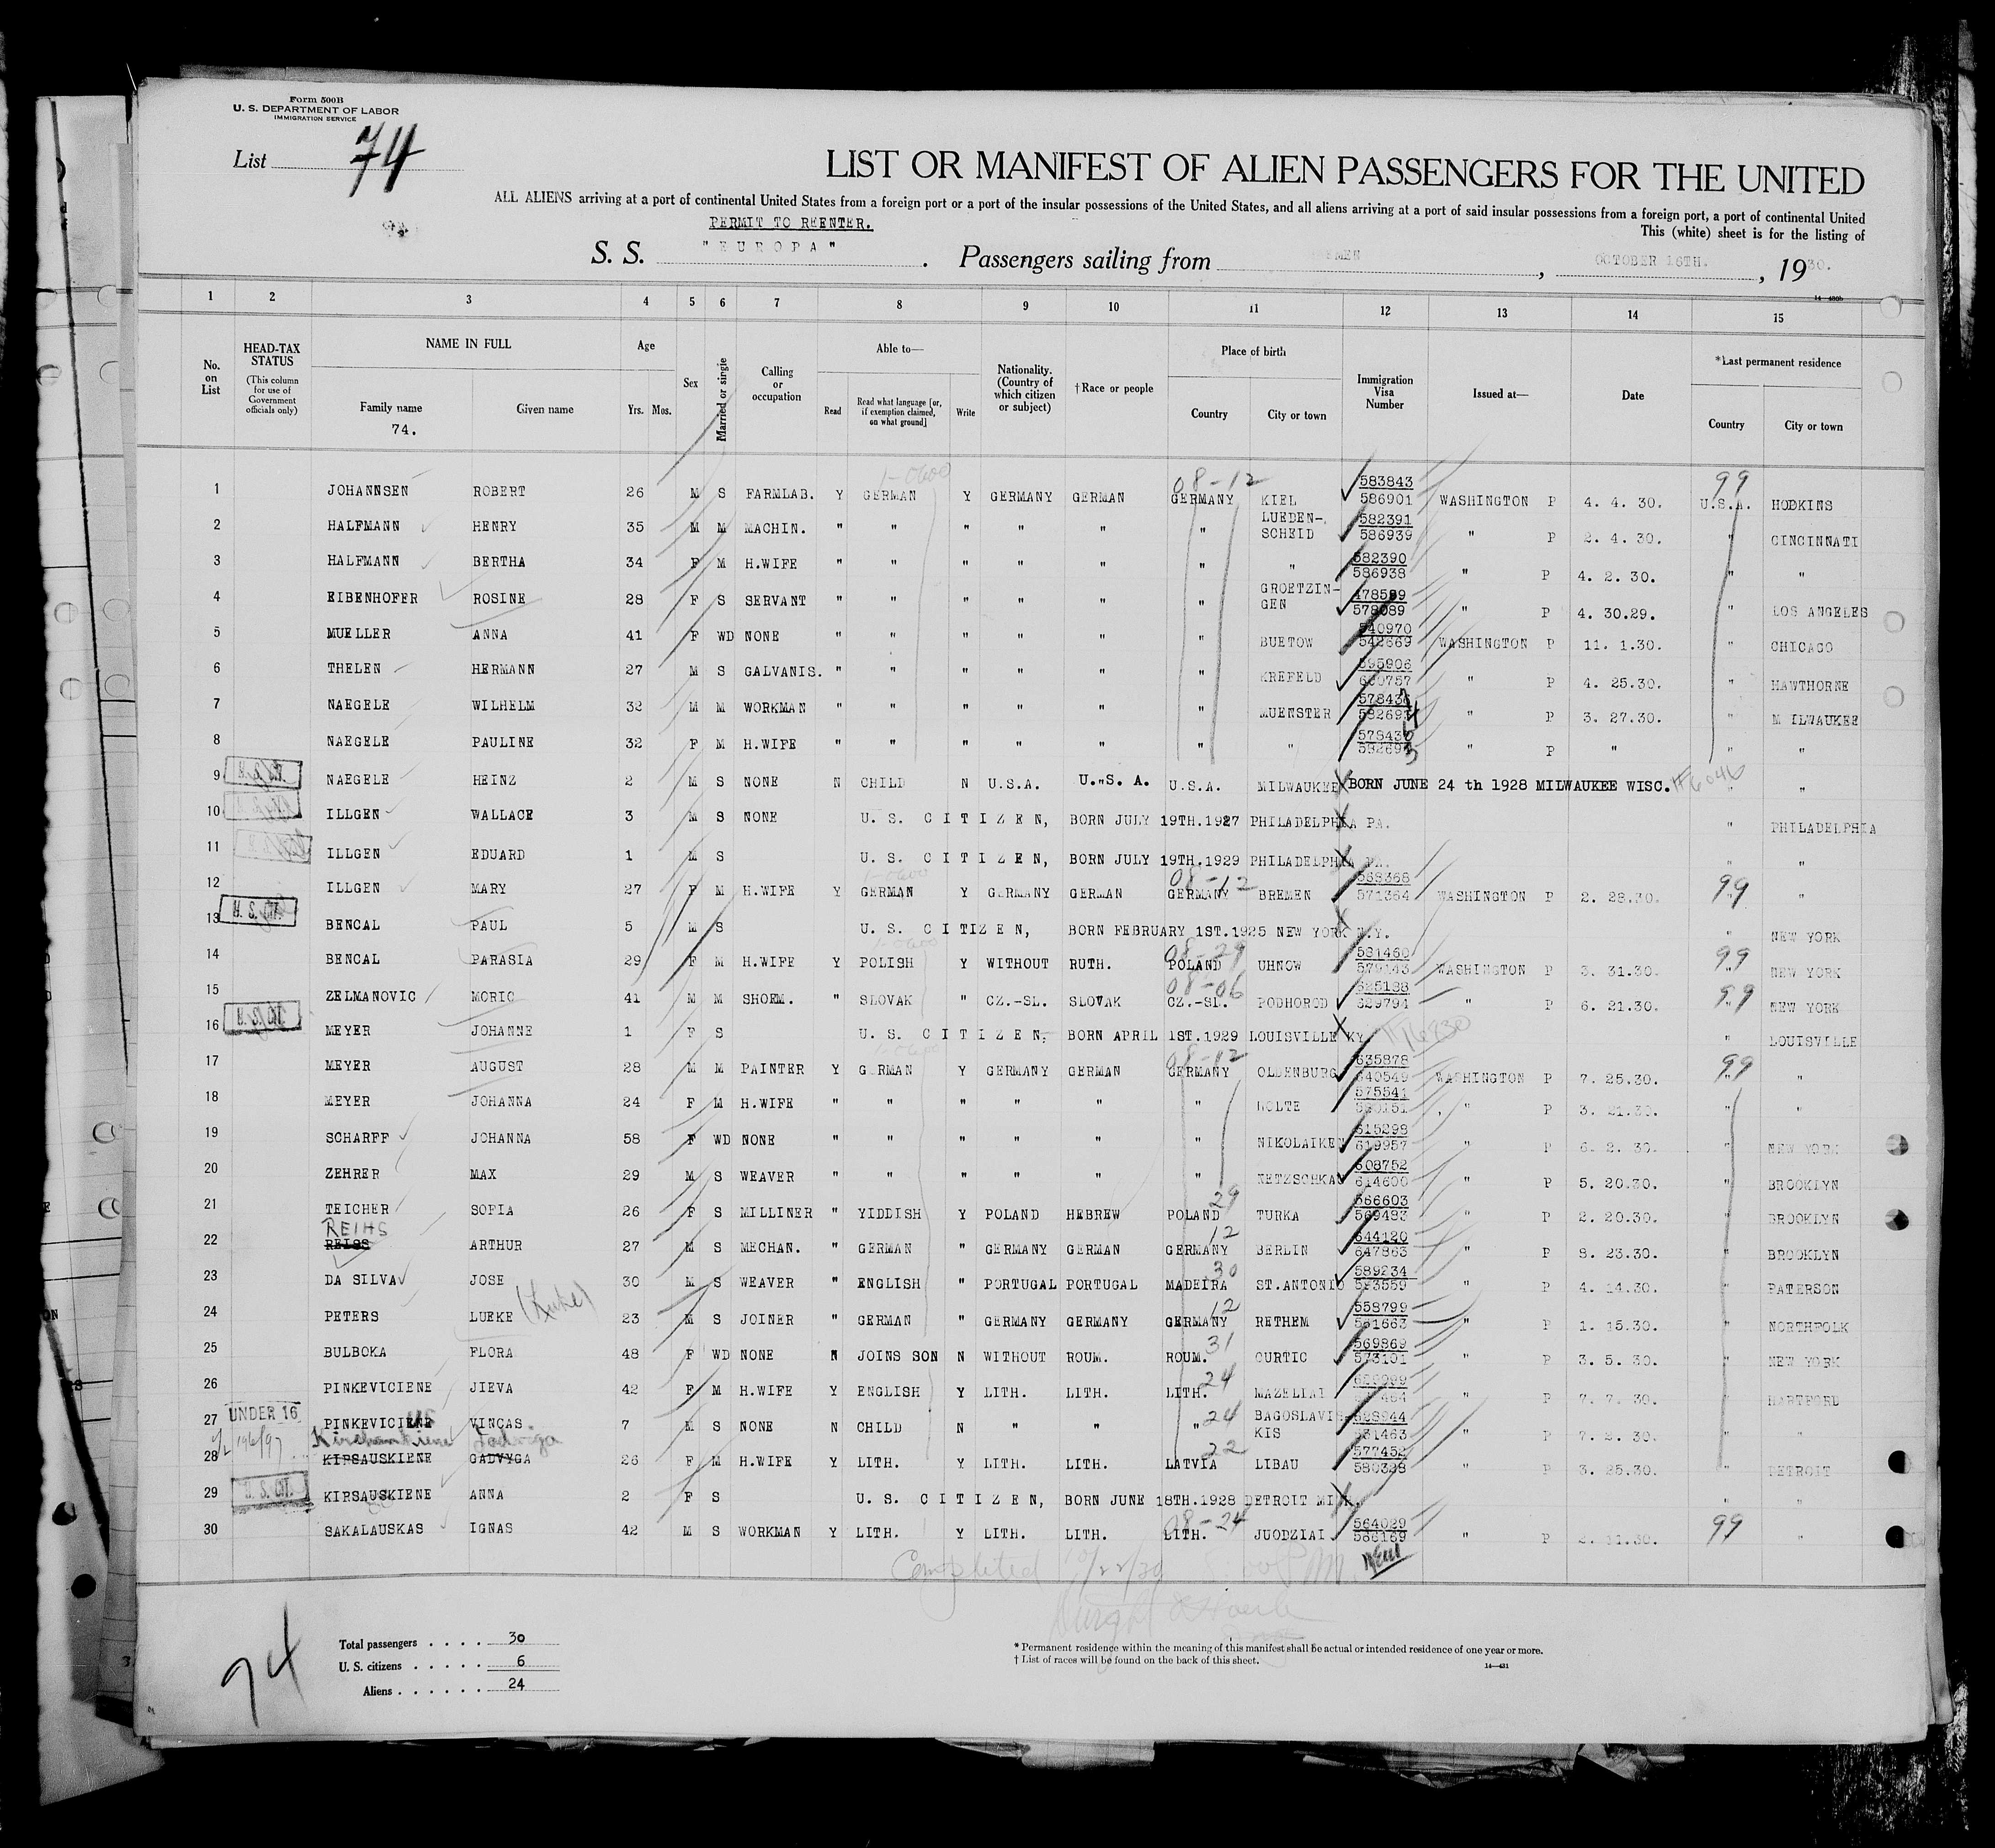 Form 500B
U. S. DEPARTMENT OF LABOR
IMMIGRATION SERVICE
List 74
LIST OR MANIFEST OF ALIEN PASSENGERS FOR THE UNITED
ALL ALIENS arriving at a port of continental United States from a foreign port or a port of the insular possessions of the United States, and all aliens arriving at a port of said insular possessions from a foreign port, a port of continental United
This (white) sheet is for the listing of
PERMIT TO REENTER.
S. S. "EUROPA". Passengers sailing from , OCTOBER 16TH. , 1930.
1 2 3 4 5 6 7 8 9 10 11 12 13 14 15
No. on List
HEAD-TAX STATUS
(This column for use of Government officials only)
NAME IN FULL
Family name
74.
Given name
Age
Yrs. Mos.
Sex
Married or single
Calling or occupation
Able to—
Read
Read what language [or, if exemption claimed, on what ground]
Write
Nationality. (Country of which citizen or subject)
†Race or people
Place of birth
Country
City or town
Immigration Visa Number
Issued at—
Date
*Last permanent residence
Country
City or town
08-12 583843 99
1 JOHANNSEN ROBERT 26 M S FARMLAB. Y GERMAN Y GERMANY GERMAN GERMANY KIEL 586901 WASHINGTON P 4. 4. 30. U.S.A. HODKINS
2 HALFMANN HENRY 35 M M MACHIN. " " " " " " LUEDEN-SCHEID 582391 586939 " P 2. 4. 30. " CINCINNATI
3 HALFMANN BERTHA 34 F M H.WIFE " " " " " " " 582390 586938 " P 4. 2. 30. " "
4 EIBENHOFER ROSINE 28 F S SERVANT " " " " " " GROETZIN-GEN 578089 " P 4. 30.29. " LOS ANGELES
5 MUELLER ANNA 41 F WD NONE " " " " " " BUETOW 540970 542669 WASHINGTON P 11. 1.30. " CHICAGO
6 THELEN HERMANN 27 M S GALVANIS. " " " " " " KREFELD " P 4. 25.30. " HAWTHORNE
7 NAEGELE WILHELM 32 M M WORKMAN " " " " " " MUENSTER " P 3. 27.30. " MILWAUKEE
8 NAEGELE PAULINE 32 F M H.WIFE " " " " " " " " P " " "
9 NAEGELE HEINZ 2 M S NONE N CHILD N U.S.A. U.S. A. U.S.A. MILWAUKEE BORN JUNE 24 th 1928 MILWAUKEE WISC. " "
10 ILLGEN WALLACE 3 M S NONE U. S. CITIZEN, BORN JULY 19TH.1927 PHILADELPHIA PA. " PHILADELPHIA
11 ILLGEN EDUARD 1 M S U. S. CITIZEN, BORN JULY 19TH.1929 PHILADELPHIA PA. " "
08-12
12 ILLGEN MARY 27 F M H.WIFE Y GERMAN Y GERMANY GERMAN GERMANY BREMEN 571364 WASHINGTON P 2. 28.30. 99 "
13 U. S. CIT. BENCAL PAUL 5 M S U. S. CITIZEN, BORN FEBRUARY 1ST.1925 NEW YORK N.Y. " NEW YORK
08-29
14 BENCAL PARASIA 29 F M H.WIFE Y POLISH Y WITHOUT RUTH. POLAND UHNOW WASHINGTON P 3. 31.30. 99 NEW YORK
08-06
15 ZELMANOVIC MORIC 41 M M SHOEM. " SLOVAK " CZ.-SL. SLOVAK CZ.-SL. PODHOROD 625188 629794 " P 6. 21.30. 99 NEW YORK
16 U. S. CIT. MEYER JOHANNE 1 F S U. S. CITIZEN, BORN APRIL 1ST.1929 LOUISVILLE KY. " LOUISVILLE
08-12
17 MEYER AUGUST 28 M M PAINTER Y GERMAN Y GERMANY GERMAN GERMANY OLDENBURG 635878 640549 WASHINGTON P 7. 25.30. 99 "
18 MEYER JOHANNA 24 F M H.WIFE " " " " " " HOLTE 575541 " P 3. 21.30. " "
19 SCHARFF JOHANNA 58 F WD NONE " " " " " " NIKOLAIKEN 615298 619957 " P 6. 2. 30. " NEW YORK
20 ZEHRER MAX 29 M S WEAVER " " " " " " NETZSCHKAU 608752 614600 " P 5. 20.30. " BROOKLYN
29
21 TEICHER SOFIA 26 F S MILLINER " YIDDISH Y POLAND HEBREW POLAND TURKA 566603 569483 " P 2. 20.30. " BROOKLYN
REIHS 12
22 REISS ARTHUR 27 M S MECHAN. " GERMAN " GERMANY GERMAN GERMANY BERLIN 644120 647863 " P 8. 23.30. " BROOKLYN
30
23 DA SILVA JOSE 30 M S WEAVER " ENGLISH " PORTUGAL PORTUGAL MADEIRA ST.ANTONIO 589234 593559 " P 4. 14.30. " PATERSON
12
24 PETERS LUEKE 23 M S JOINER " GERMAN " GERMANY GERMANY GERMANY RETHEM 558799 561663 " P 1. 15.30. " NORTHFOLK
31
25 BULBOKA FLORA 48 F WD NONE N JOINS SON N WITHOUT ROUM. ROUM. CURTIC 569869 573101 " P 3. 5. 30. " NEW YORK
24
26 PINKEVICIENE JIEVA 42 F M H.WIFE Y ENGLISH Y LITH. LITH. LITH. " P 7. 7. 30. " HARTFORD
27 UNDER 16 PINKEVICIENE VINCAS 7 M S NONE N CHILD N " " " 24 BAGOSLAVIS-KIS " P " "
22
28 KIRSAUSKIENE GADVYGA 26 F M H.WIFE Y LITH. Y LITH. LITH. LATVIA LIBAU 577452 580328 " P 3. 25.30. DETROIT
29 U. S. CIT. KIRSAUSKIENE ANNA 2 F S U. S. CITIZEN, BORN JUNE 18TH.1928 DETROIT MICH. " "
08-24
30 SAKALAUSKAS IGNAS 42 M S WORKMAN Y LITH. Y LITH. LITH. LITH. JUODZIAI 564029 566169 " P 2. 11.30. 99 "
Completed 10/22/30
74
Total passengers . . . . 30
U. S. citizens . . . . . 6
Aliens . . . . . . 24
* Permanent residence within the meaning of this manifest shall be actual or intended residence of one year or more.
† List of races will be found on the back of this sheet.
14—431